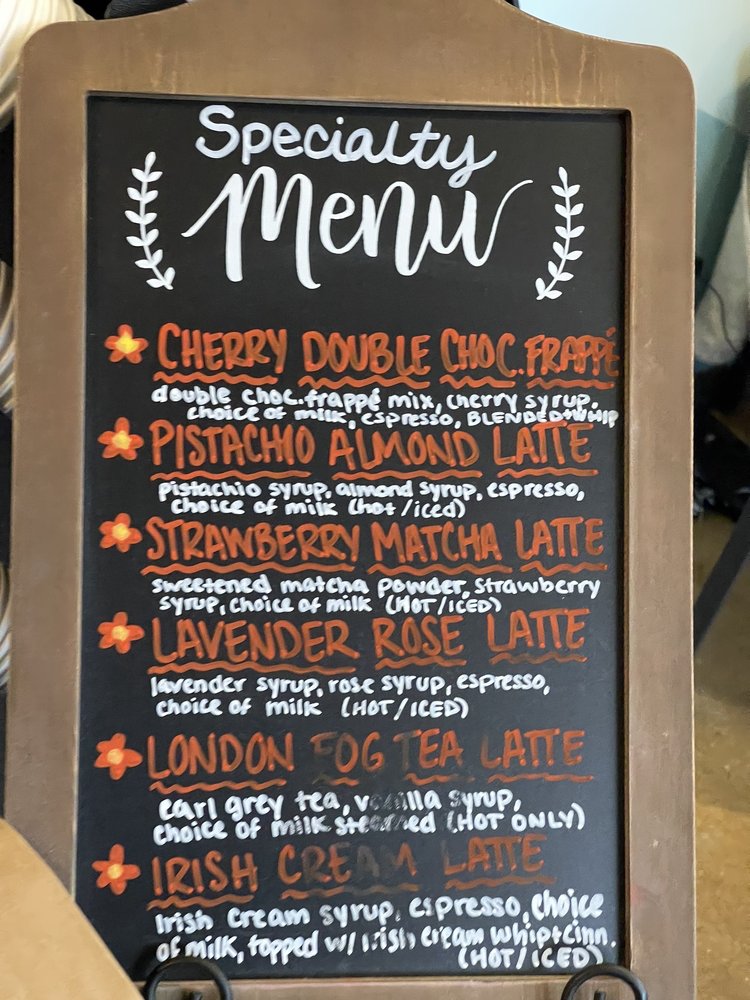 Specialty
Menu
CHERRY DOUBLE CHOC. FRAPPÉ
double choc. frappé mix, cherry syrup,
choice of milk, espresso, BLENDED+WHIP
PISTACHIO ALMOND LATTE
pistachio syrup, almond syrup, espresso,
choice of milk (hot/iced)
STRAWBERRY MATCHA LATTE
sweetened matcha powder, strawberry
syrup, choice of milk (HOT/ICED)
LAVENDER ROSE LATTE
lavender syrup, rose syrup, espresso,
choice of milk (HOT/ICED)
LONDON FOG TEA LATTE
earl grey tea, vanilla syrup,
choice of milk steamed (HOT ONLY)
IRISH CREAM LATTE
Irish cream syrup, espresso, choice
of milk, topped w/ Irish cream whip+cinn.
(HOT/ICED)